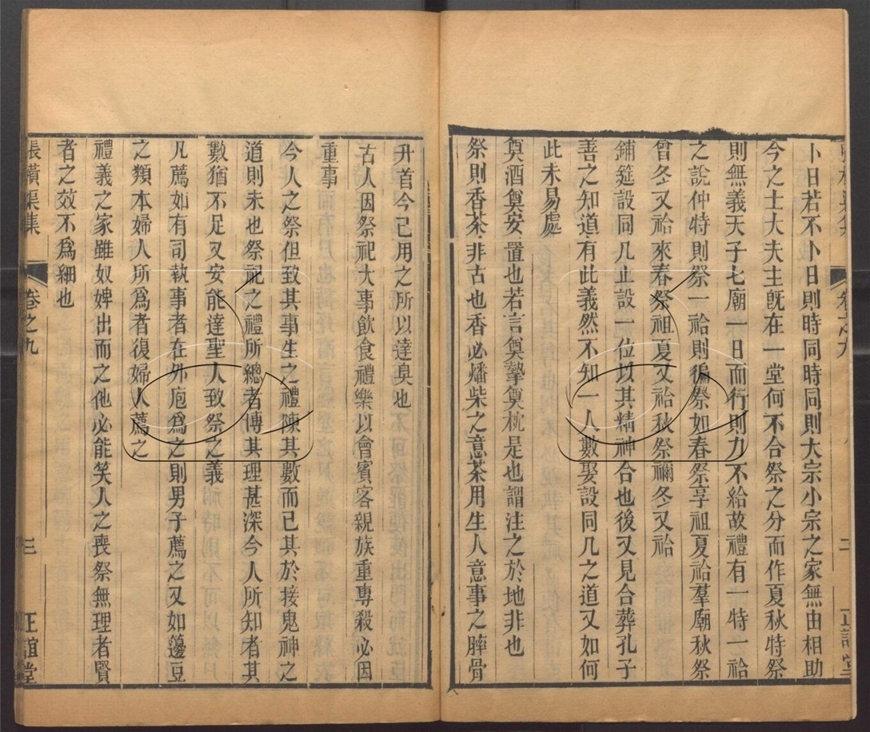 卜日若不卜日則時同時同則大宗小宗之家無由相助
今之士大夫主旣在一堂何不合祭之分而作夏秋特祭
則無義天子七廟一日而行則力不給故禮有一特一祫
之說仲特則祭一祫則徧祭如春祭享祖夏祫羣廟秋祭
曾冬又祫來春祭祖夏又祫秋祭禰冬又祫
鋪筵設同几止設一位以其精神合也後又見合葬孔子
善之知道有此義然不知一人數娶設同几之道又如何
此未易處
奠酒奠安置也若言奠摯奠枕是也謂注之於地非也
祭則香茶非古也香必燔柴之意茶用生人意事之膟膋
升首今已用之所以達臭也
古人因祭祀大事飲食禮樂以會賓客親族重專殺必因
重事
今人之祭但致其事生之禮陳其數而已其於接鬼神之
道則未也祭祀之禮所總者傳其理甚深今人所知者其
數猶不足又安能達聖人致祭之義
凡薦如有司執事者在外庖爲之則男子薦之又如籩豆
之類本婦人所爲者復婦人薦之
禮義之家雖奴婢出而之他必能笑人之喪祭無理者賢
者之效不爲細也
張橫渠集
卷之九
三
正誼堂